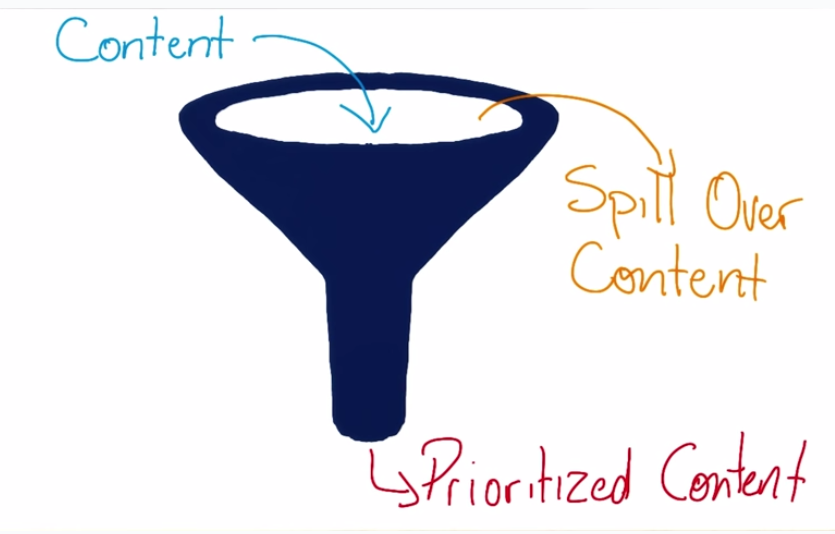 Content
Spill Over
Content
Prioritized Content